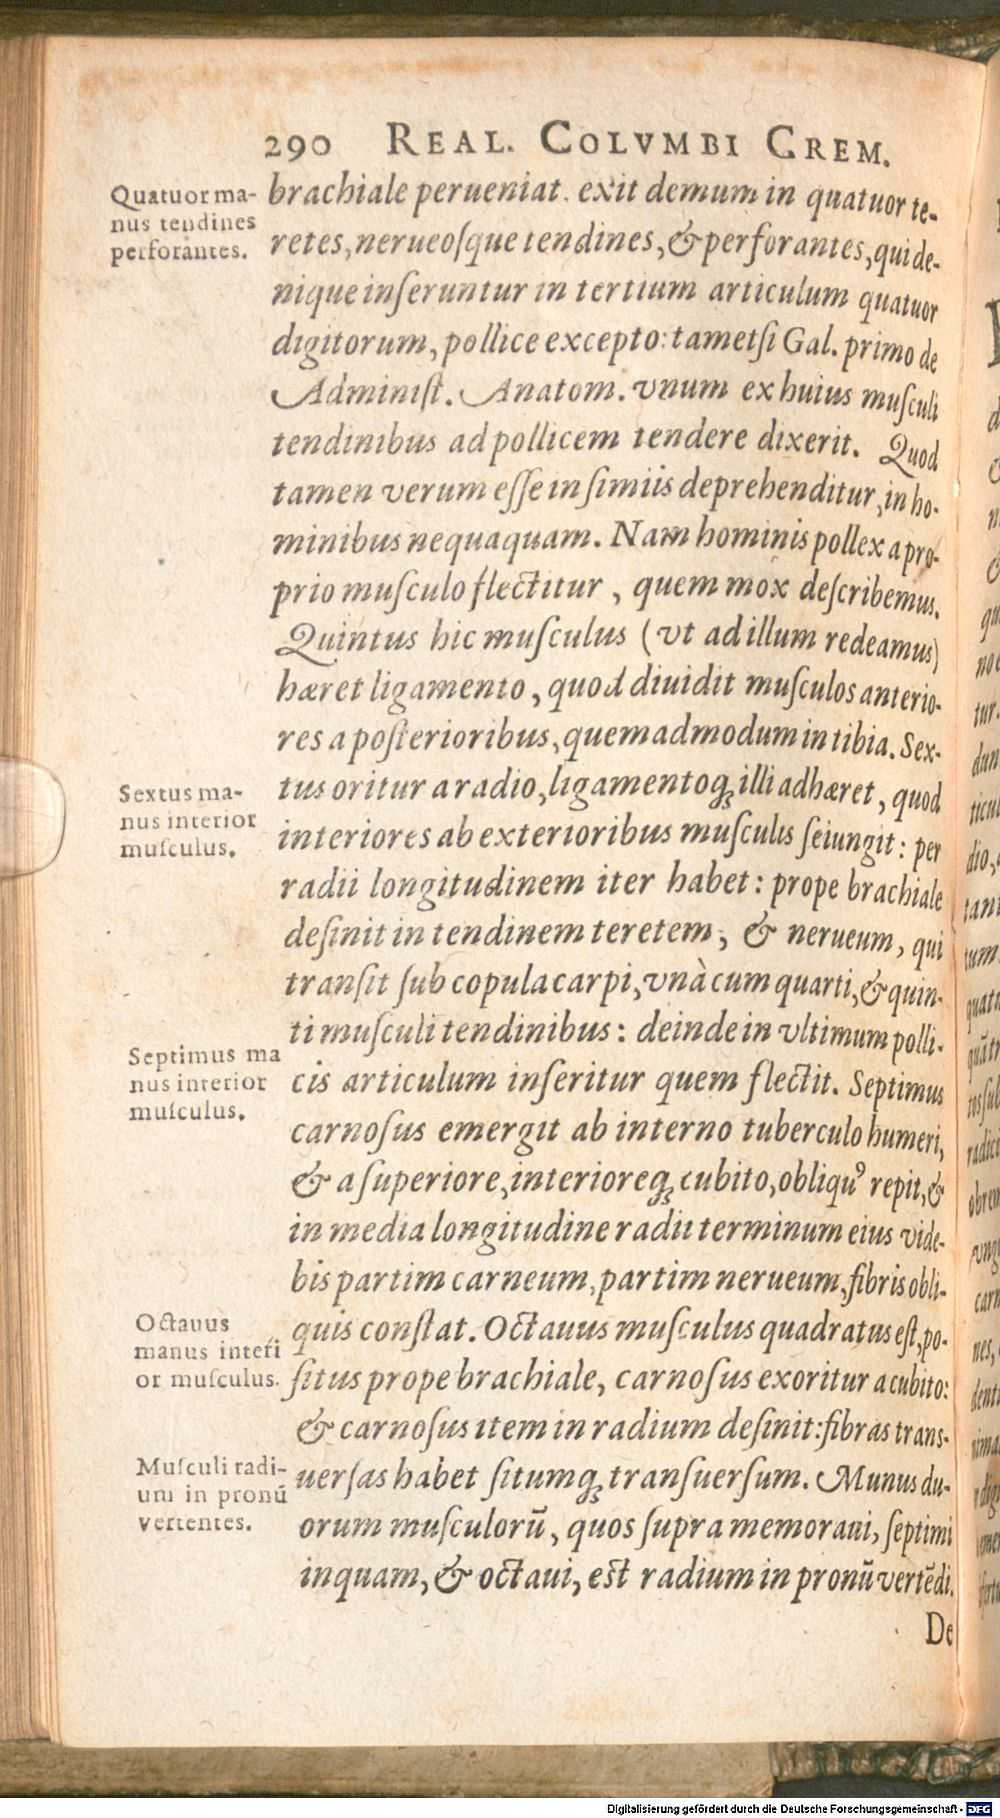 290 REAL. COLVMBI CREM.
Quatuor ma-
nus tendines
perforántes.
brachiale perueniat. exit demum in quatuor te-
retes, nerueosque tendines, & perforantes, qui de-
nique inseruntur in tertium articulum quatuor
digitorum, pollice excepto: tametsi Gal. primo de
Administ. Anatom. vnum ex huius musculi
tendinibus ad pollicem tendere dixerit. Quod
tamen verum esse in simiis deprehenditur, in ho-
minibus nequaquam. Nam hominis pollex a pro-
prio musculo flectitur, quem mox describemus.
Quintus hic musculus (vt ad illum redeamus)
hæret ligamento, quod diuidit musculos anterio-
res a posterioribus, quemadmodum in tibia. Sex-
Sextus ma-
nus interior
musculus.
tus oritur a radio, ligamentoq; illi adhæret, quod
interiores ab exterioribus musculis seiungit: per
radii longitudinem iter habet: prope brachiale
desinit in tendinem teretem, & nerueum, qui
transit sub copula carpi, vnà cum quarti, & quin-
ti musculi tendinibus: deinde in vltimum polli-
Septimus ma
nus interior
musculus.
cis articulum inseritur quem flectit. Septimus
carnosus emergit ab interno tuberculo humeri,
& a superiore, interioreq; cubito, obliquꝰ repit, &
in media longitudine radii terminum eius vide-
bis partim carneum, partim nerueum, fibris obli-
Octauus
manus interi
or musculus.
quis constat. Octauus musculus quadratus est, po-
situs prope brachiale, carnosus exoritur a cubito:
& carnosus item in radium desinit: fibras trans-
Musculi radi-
um in pronū
vertentes.
uersas habet situmq; transuersum. Munus du-
orum musculorū, quos supra memoraui, septimi
inquam, & octaui, est radium in pronū vertēdi.
De
Digitalisierung gefördert durch die Deutsche Forschungsgemeinschaft - DFG